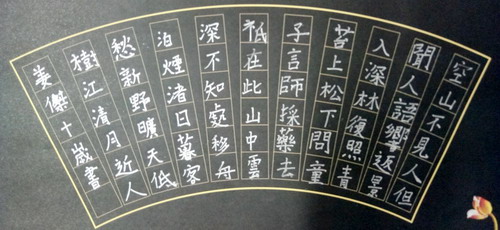 空山不見人但
聞人語響返景
入深林復照青
苔上松下問童
子言師採藥去
祇在此山中雲
深不知處移舟
泊煙渚日暮客
愁新野曠天低
樹江清月近人
姜傑十歲書